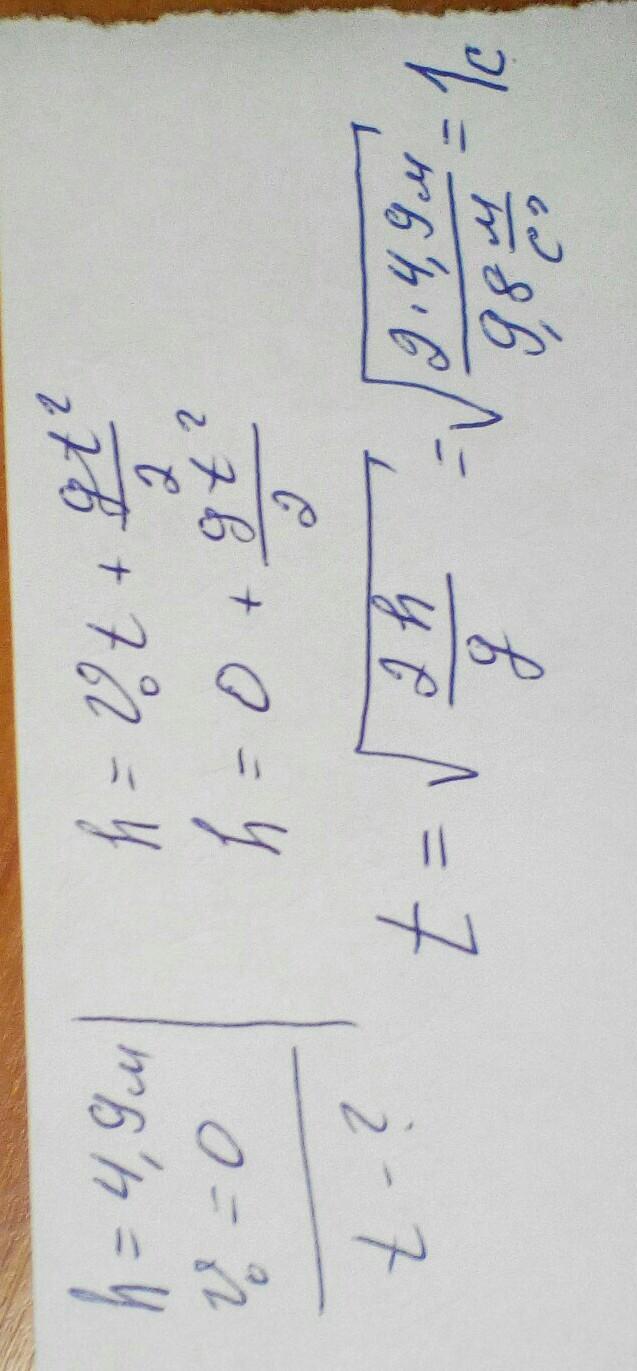 h = 4,9 м
v₀ = 0
t - ?
h = v₀t + gt²/2
h = 0 + gt²/2
t = √(2h/g) = √(2·4,9м / 9,8 м/с²) = 1с